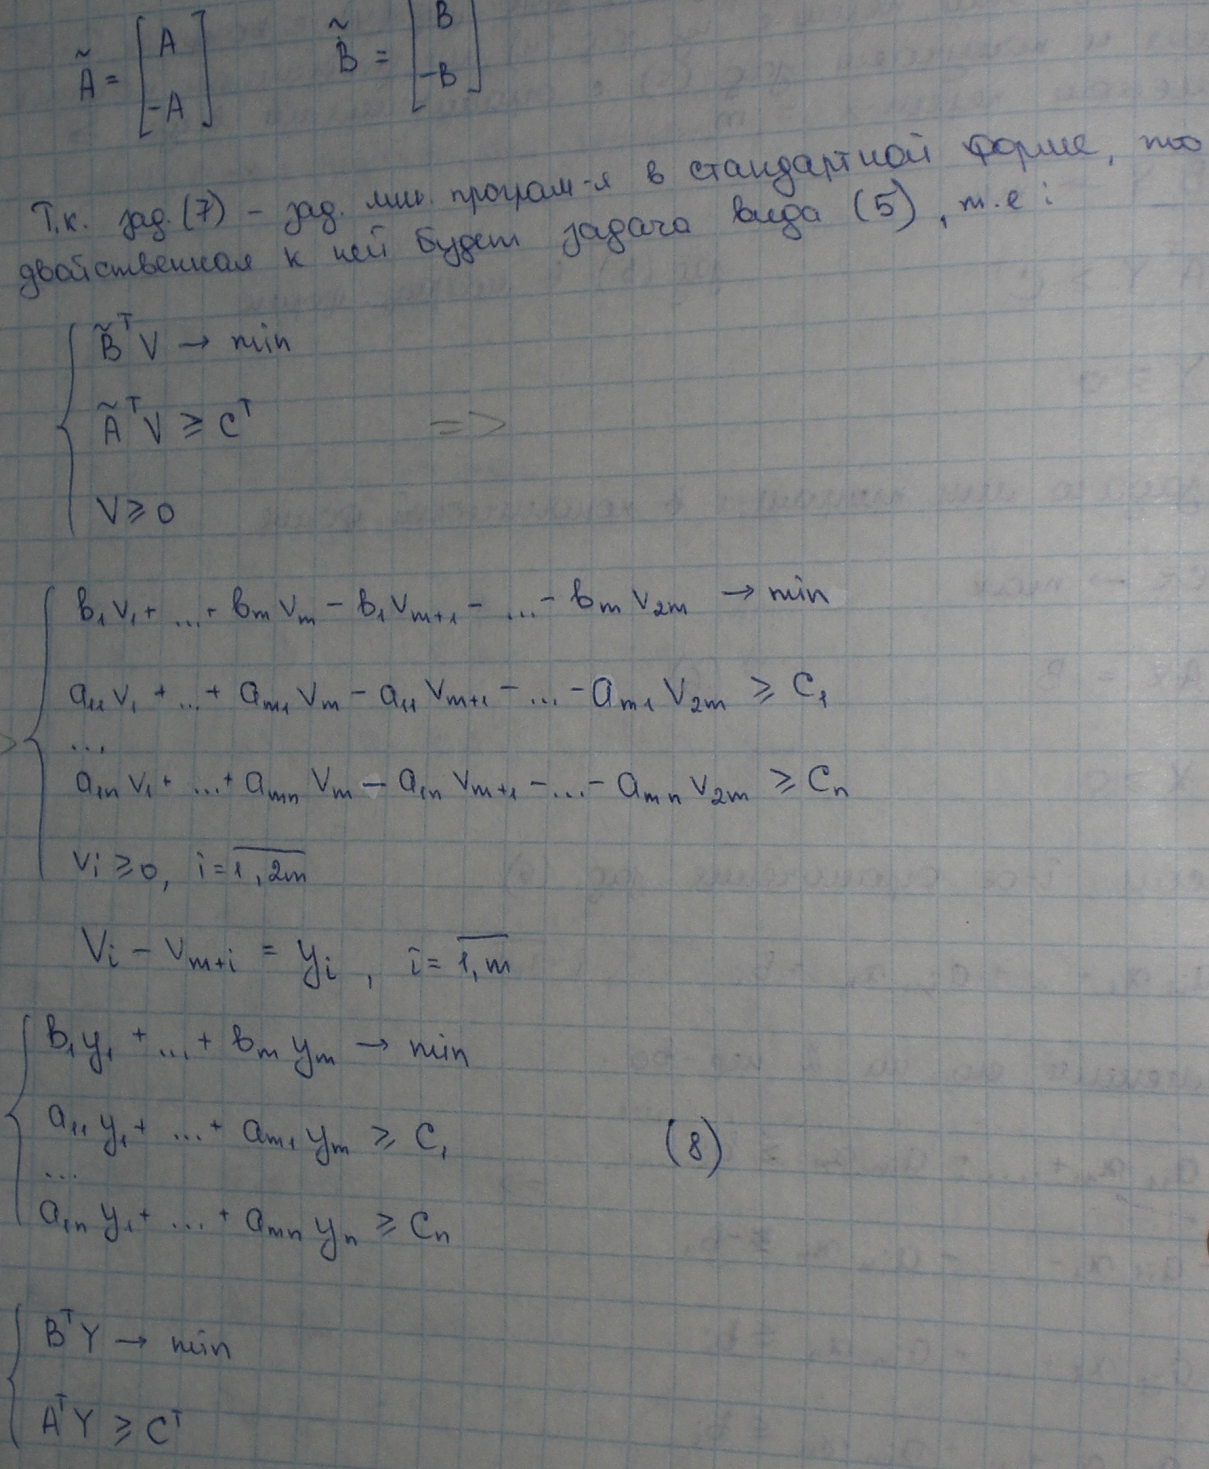 Ã = [A -A] B̃ = [B -B]
Т.к. зад. (7) – зад. лин. програм-я в стандартной форме, то
двойственная к ней будет задача вида (5), т.е:
B̃ᵀV → min
ÃᵀV ≥ Cᵀ =>
V ≥ 0
b₁v₁ + ... + bₘvₘ − b₁vₘ₊₁ − ... − bₘv₂ₘ → min
a₁₁v₁ + ... + aₘ₁vₘ − a₁₁vₘ₊₁ − ... − aₘ₁v₂ₘ ≥ C₁
...
a₁ₙv₁ + ... + aₘₙvₘ − a₁ₙvₘ₊₁ − ... − aₘₙv₂ₘ ≥ Cₙ
vᵢ ≥ 0, i = 1,2m
Vᵢ − vₘ₊ᵢ = yᵢ, i = 1,m
b₁y₁ + ... + bₘyₘ → min
a₁₁y₁ + ... + aₘ₁yₘ ≥ C₁ (8)
...
a₁ₙy₁ + ... + aₘₙyₙ ≥ Cₙ
BᵀY → min
AᵀY ≥ Cᵀ